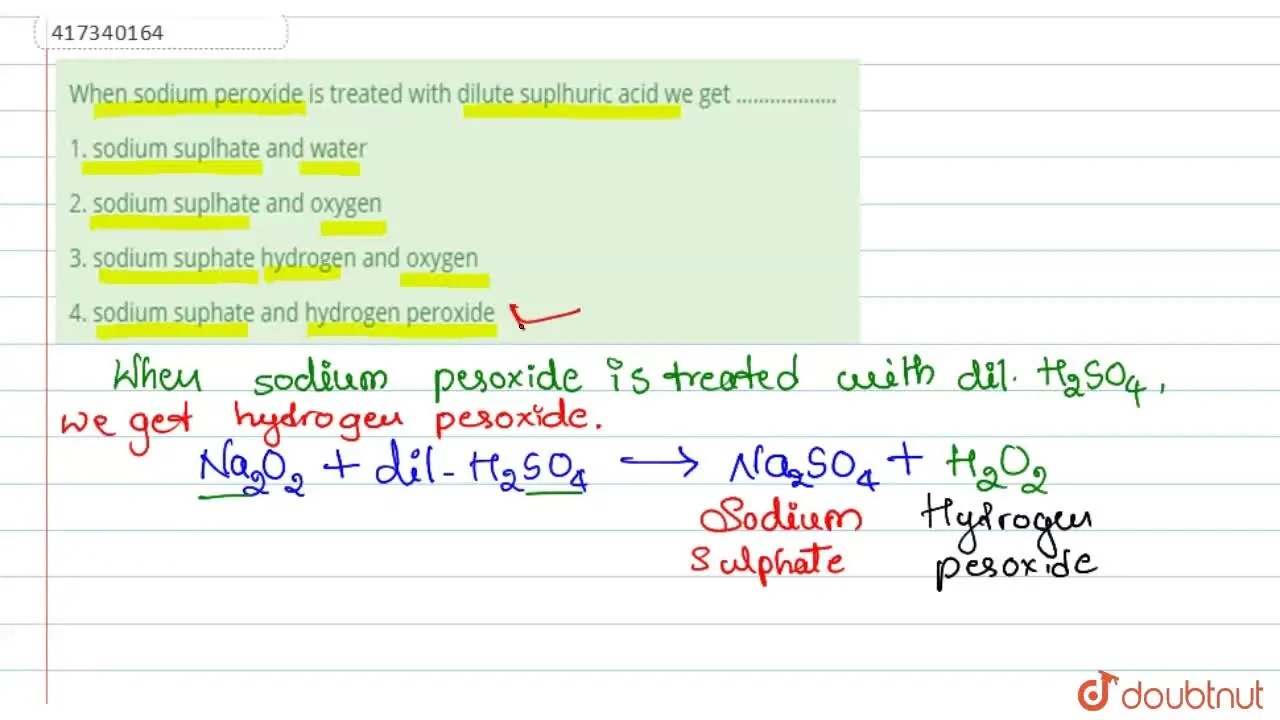 417340164
When sodium peroxide is treated with dilute suplhuric acid we get ..................
1. sodium suplhate and water
2. sodium suplhate and oxygen
3. sodium suphate hydrogen and oxygen
4. sodium suphate and hydrogen peroxide
When sodium peroxide is treated with dil. H₂SO₄,
we get hydrogen peroxide.
Na₂O₂ + dil- H₂SO₄ → Na₂SO₄ + H₂O₂
Sodium Hydrogen
Sulphate peroxide
doubtnut